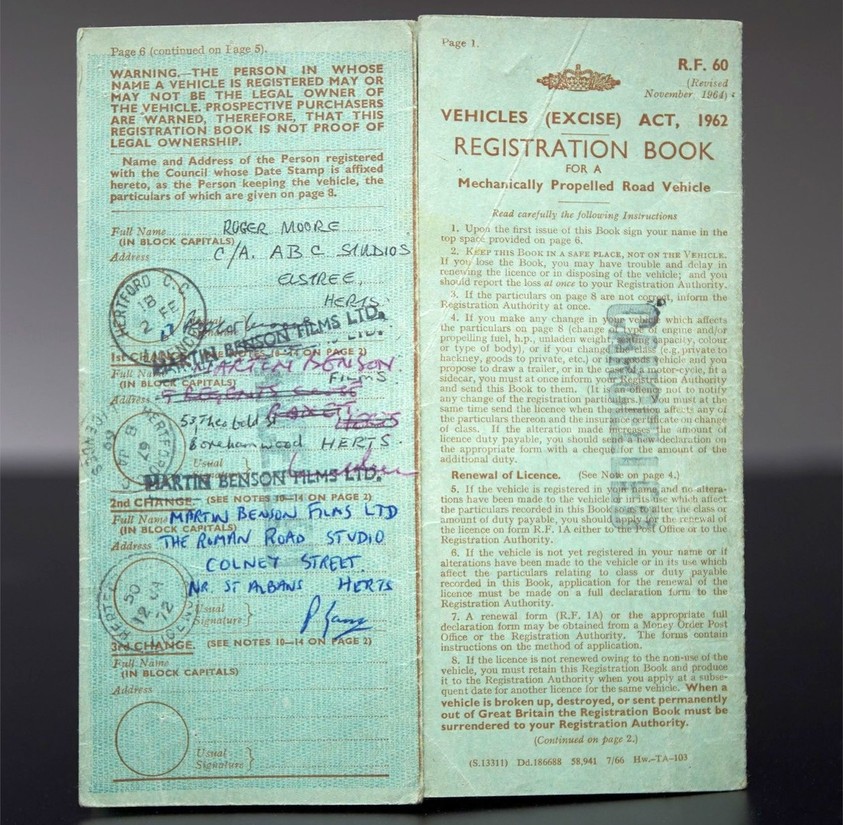 Page 6 (continued on Page 5).
WARNING.—THE PERSON IN WHOSE
NAME A VEHICLE IS REGISTERED MAY OR
MAY NOT BE THE LEGAL OWNER OF
THE VEHICLE. PROSPECTIVE PURCHASERS
ARE WARNED, THEREFORE, THAT THIS
REGISTRATION BOOK IS NOT PROOF OF
LEGAL OWNERSHIP.
Name and Address of the Person registered
with the Council whose Date Stamp is affixed
hereto, as the Person keeping the vehicle, the
particulars of which are given on page 8.
Full Name ROGER MOORE
(IN BLOCK CAPITALS)
Address C/A. ABC STUDIOS
ELSTREE,
HERTS
HERTFORD C.C.
18 FE
MARTIN BENSON FILMS LTD.
1st CHANGE. (SEE NOTES 10—14 ON PAGE 2)
Full Name MARTIN BENSON
(IN BLOCK CAPITALS) FILMS
Address
Borehamwood HERTS.
Usual
MARTIN BENSON FILMS LTD.
2nd CHANGE. (SEE NOTES 10—14 ON PAGE 2)
Full Name MARTIN BENSON FILMS LTD
(IN BLOCK CAPITALS)
Address THE ROMAN ROAD STUDIO
COLNEY STREET.
NR. ST ALBANS HERTS
Usual
Signature
3rd CHANGE. (SEE NOTES 10—14 ON PAGE 2)
Full Name
(IN BLOCK CAPITALS)
Address
Usual
Signature
Page 1.
R.F. 60
(Revised
November, 1964)
VEHICLES (EXCISE) ACT, 1962
REGISTRATION BOOK
FOR A
Mechanically Propelled Road Vehicle
Read carefully the following Instructions
1. Upon the first issue of this Book sign your name in the
top space provided on page 6.
2. KEEP THIS BOOK IN A SAFE PLACE, NOT ON THE VEHICLE.
If you lose the Book, you may have trouble and delay in
renewing the licence or in disposing of the vehicle; and you
should report the loss at once to your Registration Authority.
3. If the particulars on page 8 are not correct, inform the
Registration Authority at once.
4. If you make any change in your vehicle which affects
the particulars on page 8 (change of type of engine and/or
propelling fuel, h.p., unladen weight, seating capacity, colour
or type of body), or if you change its class (e.g. private to
hackney, goods to private, etc.) or if you use a vehicle and you
propose to draw a trailer, or in the case of a motor-cycle, fit a
sidecar, you must at once inform your Registration Authority
and send this Book to them. (It is an offence not to notify
any change of the registration particulars.) You must at the
same time send the licence when the alteration affects any of
the particulars thereon and the insurance certificate on change
of class. If the alteration made increases the amount of
licence duty payable, you should send a declaration on the
appropriate form with a cheque for the amount of the
additional duty.
Renewal of Licence. (See Note on page 4.)
5. If the vehicle is registered in your name and no altera-
tions have been made to the vehicle or in its use which affect
the particulars recorded in this Book or to alter the class or
amount of duty payable, you should apply for the renewal of
the licence on form R.F. 1A either to the Post Office or to the
Registration Authority.
6. If the vehicle is not yet registered in your name or if
alterations have been made to the vehicle or in its use which
affect the particulars relating to class or duty payable
recorded in this Book, application for the renewal of the
licence must be made on a full declaration form to the
Registration Authority.
7. A renewal form (R.F. 1A) or the appropriate full
declaration form may be obtained from a Money Order Post
Office or the Registration Authority. The forms contain
instructions on the method of application.
8. If the licence is not renewed owing to the non-use of the
vehicle, you must retain this Registration Book and produce
it to the Registration Authority when you apply at a subse-
quent date for another licence for the same vehicle. When a
vehicle is broken up, destroyed, or sent permanently
out of Great Britain the Registration Book must be
surrendered to your Registration Authority.
(Continued on page 2.)
(S.13311) Dd.186688 58,941 7/66 Hw.—TA—103